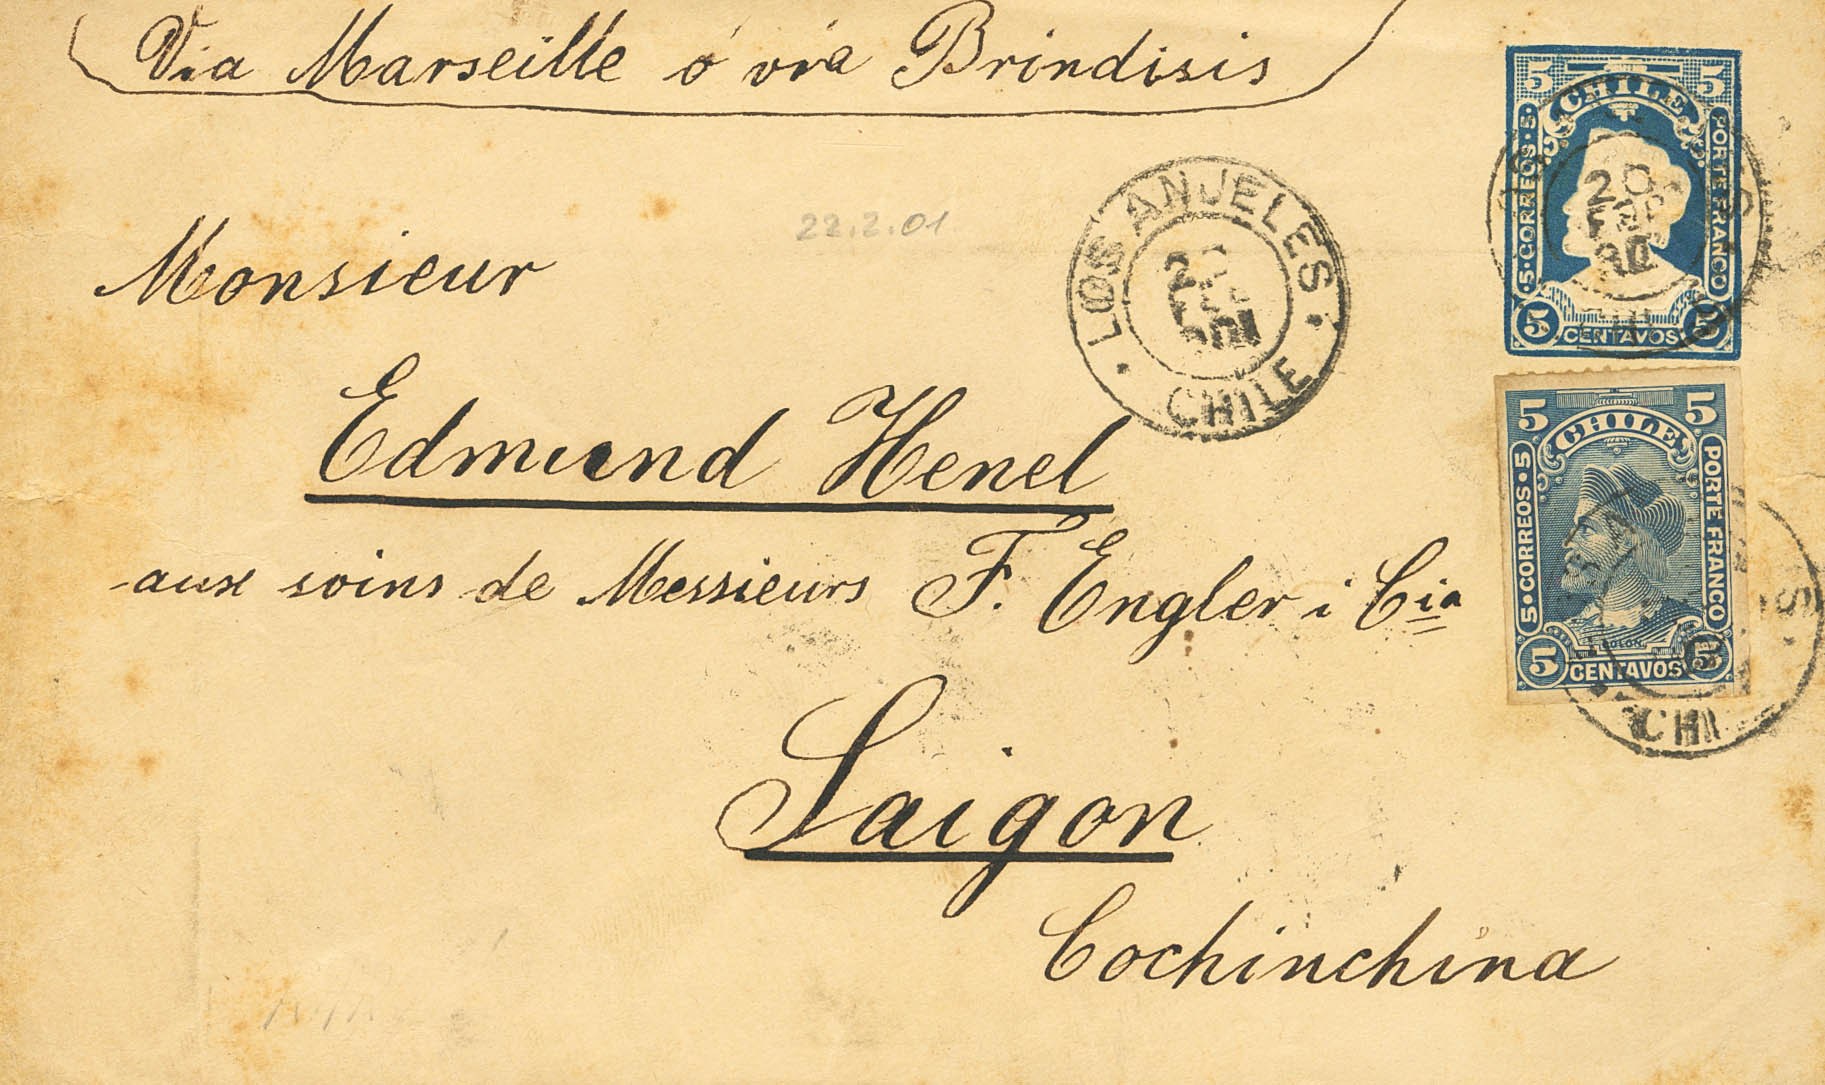 Via Marseille ó via Brindisis
5 CHILE 5
5·CORREOS·5
PORTE FRANCO
5 CENTAVOS 5
22.2.01
LOS ANJELES
CHILE
Monsieur
Edmund Henel
5 CHILE 5
5·CORREOS·5
PORTE FRANCO
5 CENTAVOS 5
aux soins de Messieurs F. Engler i Cia
Saigon
Cochinchina